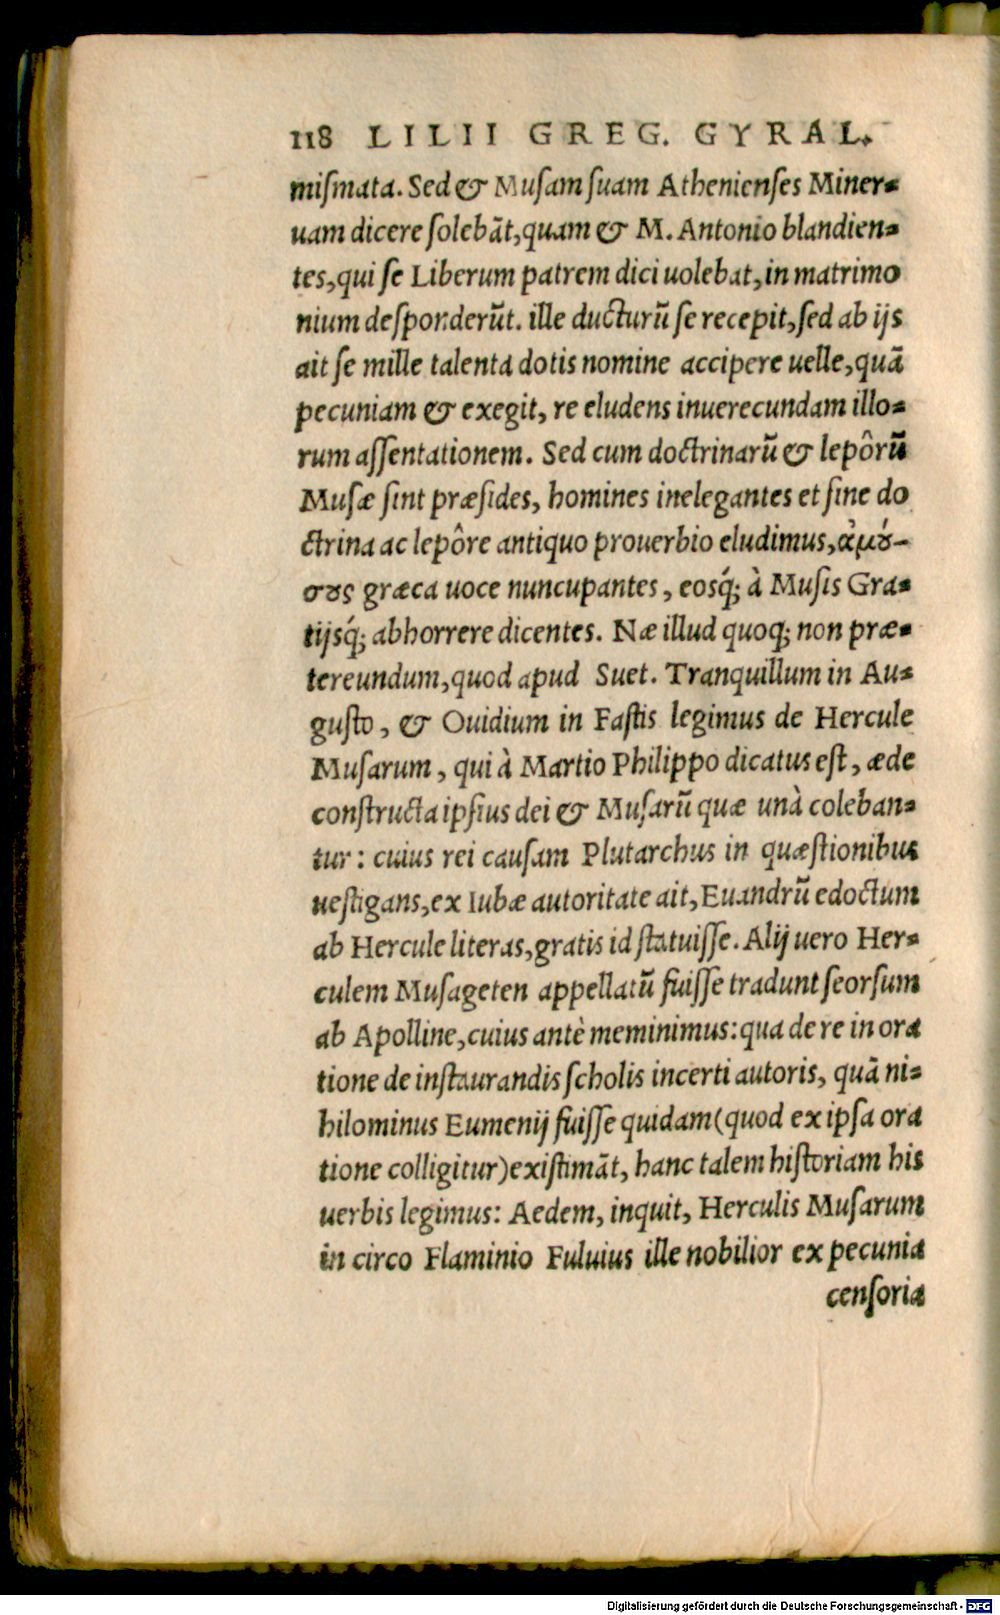 118 LILII GREG. GYRAL.
miſmata. Sed & Muſam ſuam Athenienſes Miner-
uam dicere ſolebãt, quam & M. Antonio blandien-
tes, qui ſe Liberum patrem dici uolebat, in matrimo
nium deſponderũt. ille ducturũ ſe recepit, ſed ab ijs
ait ſe mille talenta dotis nomine accipere uelle, quã
pecuniam & exegit, re eludens inuerecundam illo-
rum aſſentationem. Sed cum doctrinarũ & lepôrũ
Muſæ ſint præſides, homines inelegantes et ſine do
ctrina ac lepôre antiquo prouerbio eludimus, ἀμȣ́-
σȣς græca uoce nuncupantes, eosq́; à Muſis Gra-
tijsq́; abhorrere dicentes. Næ illud quoq; non præ-
tereundum, quod apud Suet. Tranquillum in Au-
guſto, & Ouidium in Faſtis legimus de Hercule
Muſarum, qui à Martio Philippo dicatus eſt, æde
conſtructa ipſius dei & Muſarũ quæ unà coleban-
tur: cuius rei cauſam Plutarchus in quæſtionibus
ueſtigans, ex Iubæ autoritate ait, Euandrũ edoctum
ab Hercule literas, gratis id ſtatuiſſe. Alij uero Her-
culem Muſageten appellatũ fuiſſe tradunt ſeorſum
ab Apolline, cuius antè meminimus: qua de re in ora
tione de inſtaurandis ſcholis incerti autoris, quã ni-
hilominus Eumenij fuiſſe quidam (quod ex ipſa ora
tione colligitur) exiſtimãt, hanc talem hiſtoriam his
uerbis legimus: Aedem, inquit, Herculis Muſarum
in circo Flaminio Fuluius ille nobilior ex pecunia
cenſoria
Digitalisierung gefördert durch die Deutsche Forschungsgemeinschaft - DFG